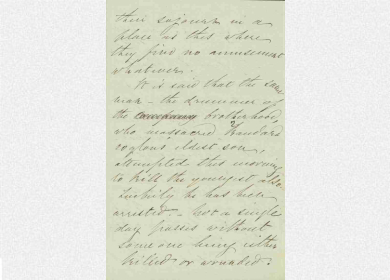 their sojourn in a
place as this where
they find no amusement
whatever.
It is said that the same
man - the drummer of
the company brotherhood,
who massacred
eldest son,
attempted this morning
to kill the youngest also.
Luckily he has been
arrested. - Not a single
day passes without
some one being either
killed or wounded.